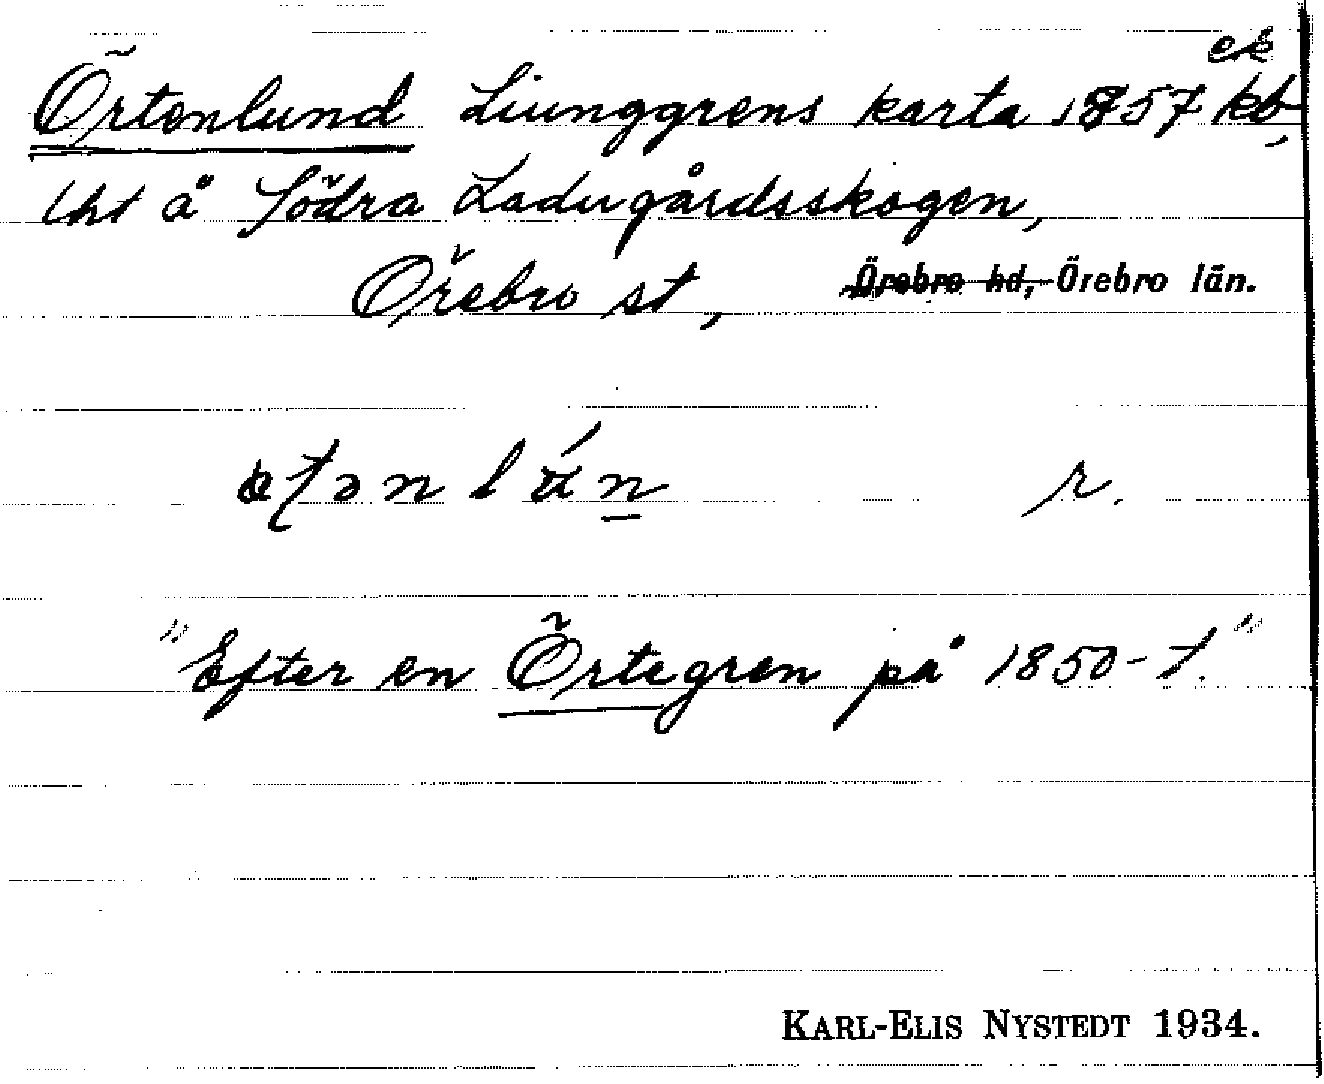 Örtenlund Liunggrens karta 1857 ek kb,
lht å Södra Ladugårdsskogen,
Örebro st, Örebro hd, Örebro län.
r.
"Efter en Örtegren på 1850-t."
KARL-ELIS NYSTEDT 1934.